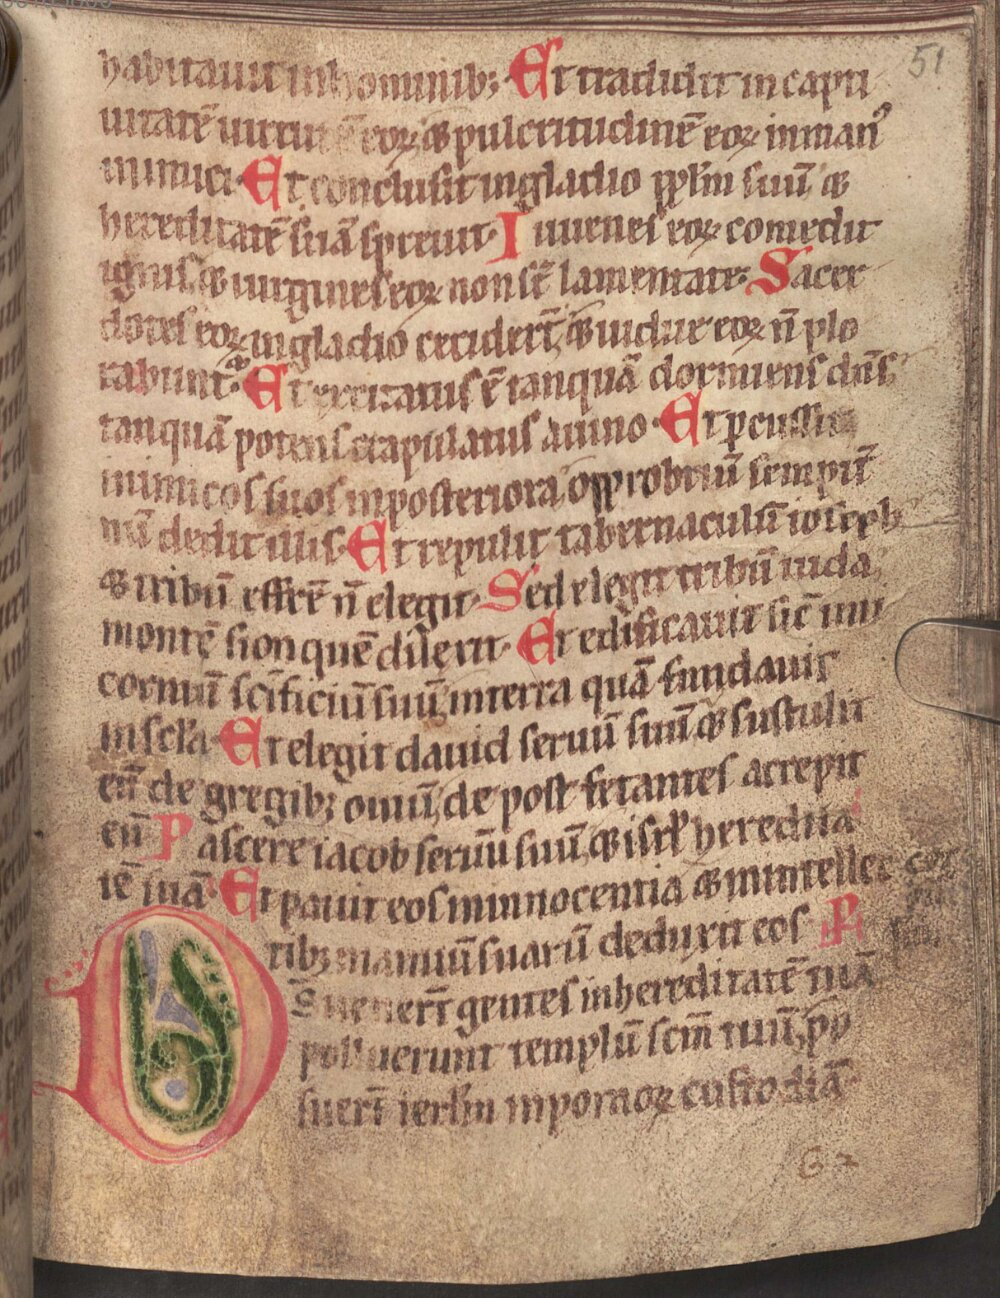 51
habitauit in hominib; Et tradidit in capti
uitatē uirtutē eoꝝ ⁊ pulcritudinē eoꝝ in man᷒
inimici. Et conclusit in gladio ꝓplm̄ suū ⁊
hereditatē suā spreuit. Iuuenes eoꝝ comedit
ignis, ⁊ uirgines eoꝝ non sē lamentate. Sacer
dotes eoꝝ in gladio cecidert̄, ⁊ uidue eoꝝ n̄ plo
rabunt̄. Et excitatus ē tanquā dormiens dn̄s,
tanquā potens crapulatus a uino. Et ꝑcussit
inimicos suos in posteriora, opprobriū sempit̄
nū dedit illis. Et repulit tabernaculū ioseph
⁊ tribū effrē n̄ elegit. Sed elegit tribū iuda,
montē sion quē dilexit. Et edificauit sic̄ uni
cornuū sc̄ificiū suū, in terra quā fundauit
in scl̄a. Et elegit dauid seruū suū ⁊ sustulit
eū de gregib; ouiū, de post fetantes accepit
eū Pascere iacob seruū suū, ⁊ isrl̄ heredita
tē suā. Et pauit eos in innocentia ⁊ in intelle
ctib; manuū suarū deduxit eos.
Dš uenert̄ gentes in hereditatē tuā
polluerunt templū scm̄ tuū, po
suert̄ ierlm̄ in pomoꝝ custodiā.
62